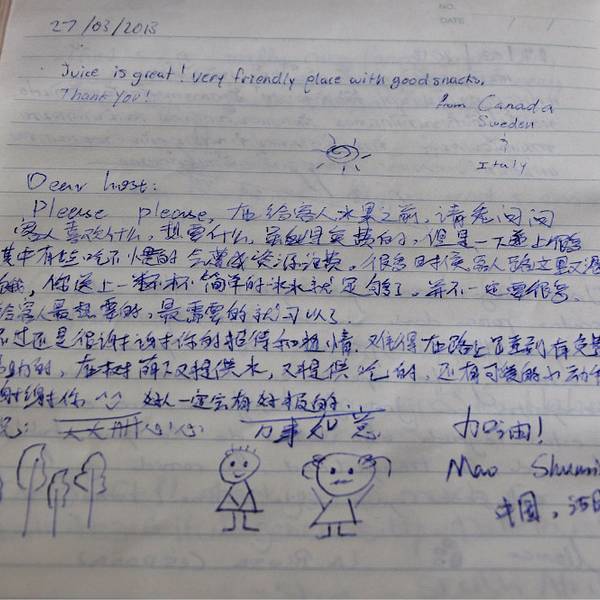 27/03/2013
Juice is great! very friendly place with good snacks.
Thank You!
from Canada
Sweden
&
Italy
Dear host:
Please please, 在给客人水果之前, 请先问问
客人喜欢什么, 想要什么. 虽然是免费的, 但是一下递上很多
其中有些吃不惯的会造成资源浪费。很多时候客人路途又渴
你送上一杯简单的冰水就足够了。并不一定要很多.
给客人最想要的, 最需要的就可以了.
不过还是很谢谢你的招待和热情. 难得在路上还遇到有免费
的, 在树荫下又提供水, 又提供吃的, 还有可爱的小动物
谢谢你 好人一定会有好报的...
祝: 天天开心! 万事如意 加油!
Mao
中国,